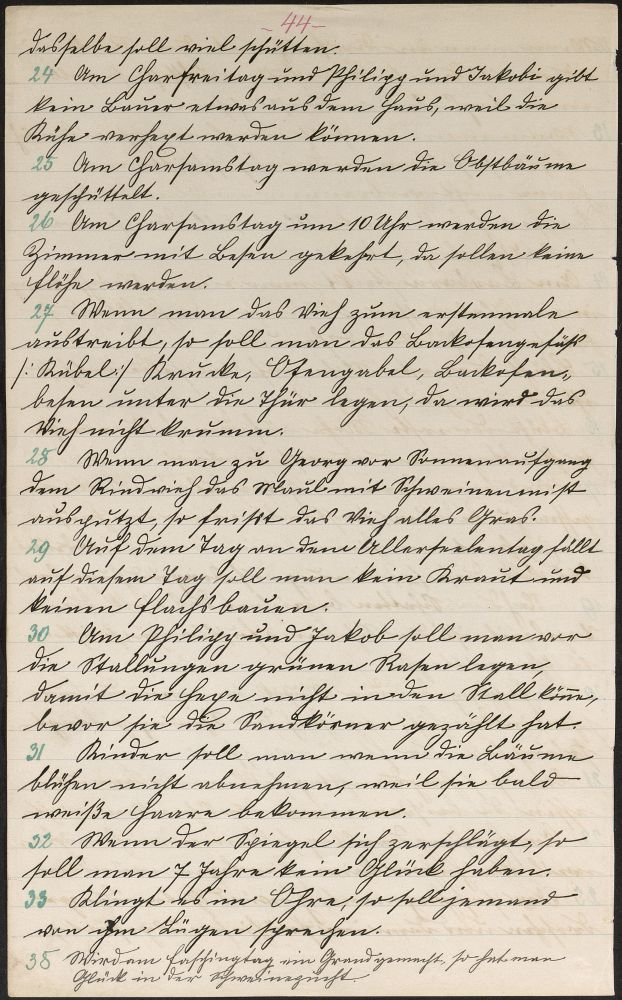 -44-
dasselbe soll viel schütten.
24 Am Charfreitag und Philipp und Jakobi gibt
kein Bauer etwas aus dem Haus, weil die
Kühe verhext werden können.
25 Am Charsamstag werden die Obstbäume
geschüttelt.
26 Am Charsamstag um 10 Uhr werden die
Zimmer mit Besen gekehrt, da sollen keine
Flöhe werden.
27 Wenn man das Vieh zum erstenmale
austreibt, so soll man das Backofengefäß
/: Kübel :/ Krucke, Ofengabel, Backofen-
besen unter die Thür legen, da wird das
Vieh nicht krumm.
28 Wenn man zu Georg vor Sonnenaufgang
dem Rindvieh das Maul mit Schweinenmist
ausputzt, so frißt das Vieh alles Gras.
29 Auf dem Tag an dem Allerseelentag fällt
auf diesem Tag soll man kein Kraut und
keinen Flachs bauen.
30 Am Philipp und Jakob soll man vor
die Stallungen grünen Rasen legen,
damit die Hexe nicht in den Stall köne,
bevor sie die Sandkörner gezählt hat.
31 Kinder soll man wenn die Bäume
blühen nicht abnehmen, weil sie bald
weiße Haare bekommen.
32 Wenn der Spiegel sich zerschlägt, so
soll man 7 Jahre kein Glück haben.
33 Klingt es im Ohre, so soll jemand
von ihm Lügen sprechen.
35 Wird am Faschingtag ein Grand gemacht, so hat man
Glück in der Schweinezucht.